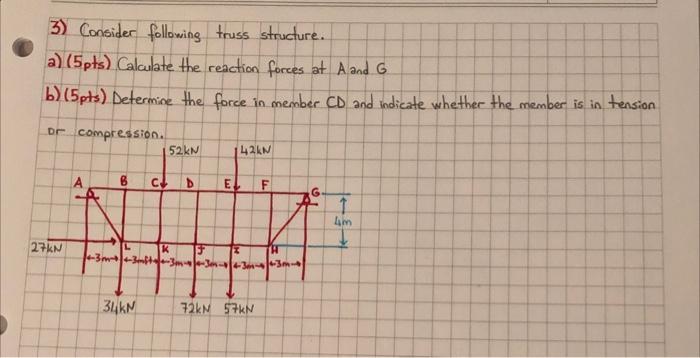 3) Consider following truss structure.
a) (5pts) Calculate the reaction forces at A and G
b) (5pts) Determine the force in member CD and indicate whether the member is in tension
or compression.
52kN 42kN
A B C D E F G
4m
27kN L K J I H
3m 3m 3m 3m 3m 3m
34kN 72kN 57kN